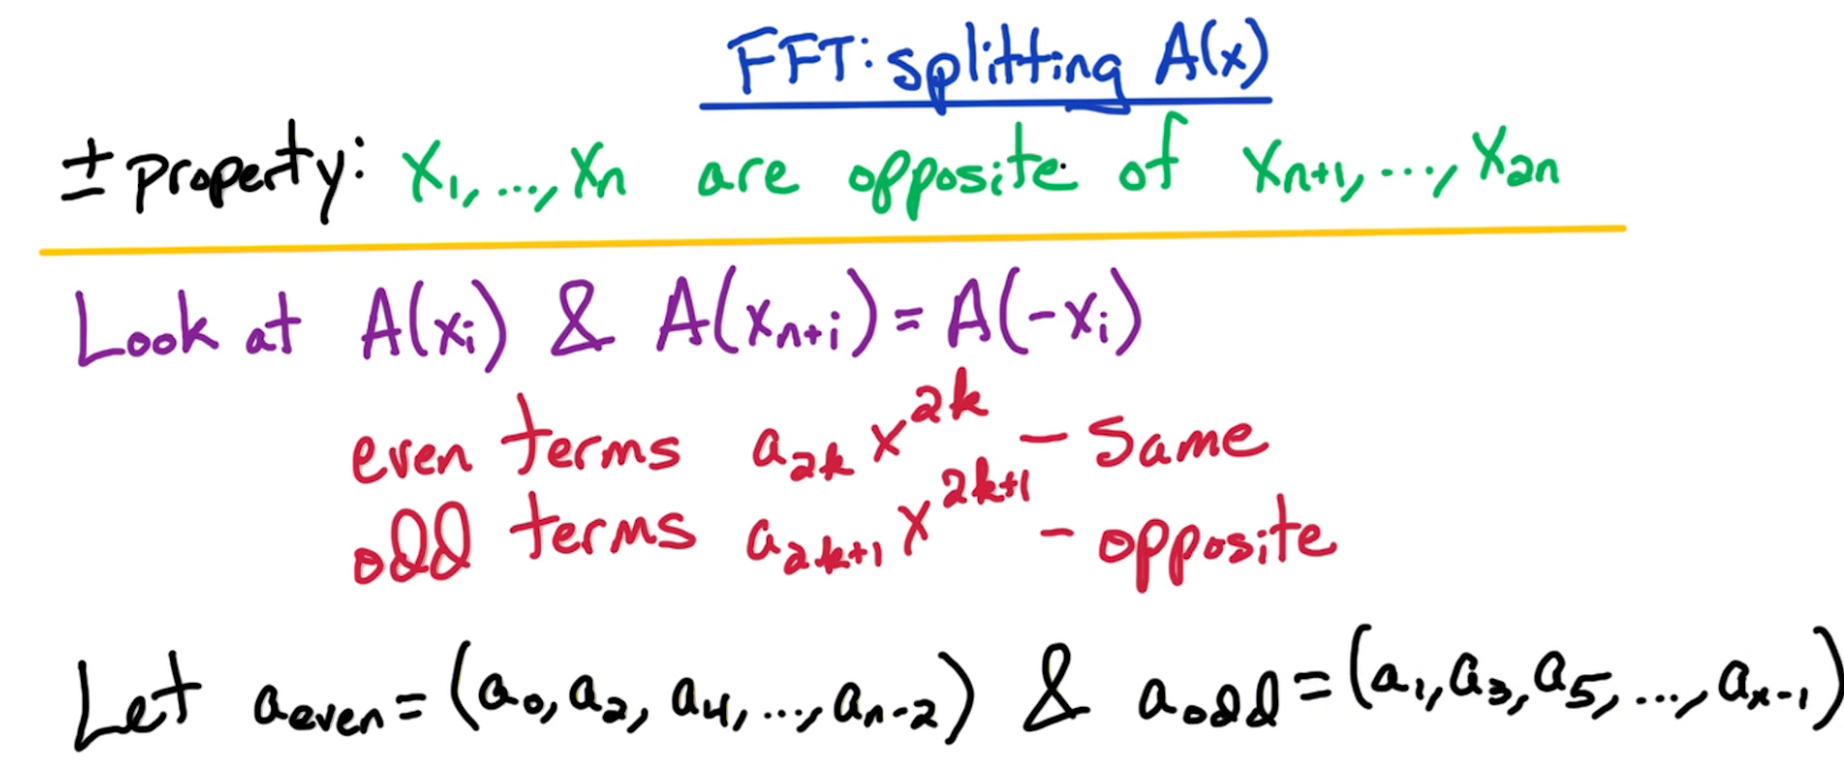 FFT: splitting A(x)
± property: x₁, ..., xₙ are opposite of xₙ₊₁, ..., x₂ₙ
Look at A(xᵢ) & A(xₙ₊ᵢ) = A(-xᵢ)
even terms a₂ₖ x²ᵏ - same
odd terms a₂ₖ₊₁ x²ᵏ⁺¹ - opposite
Let a_even = (a₀, a₂, a₄, ..., aₙ₋₂) & a_odd = (a₁, a₃, a₅, ..., aₙ₋₁)